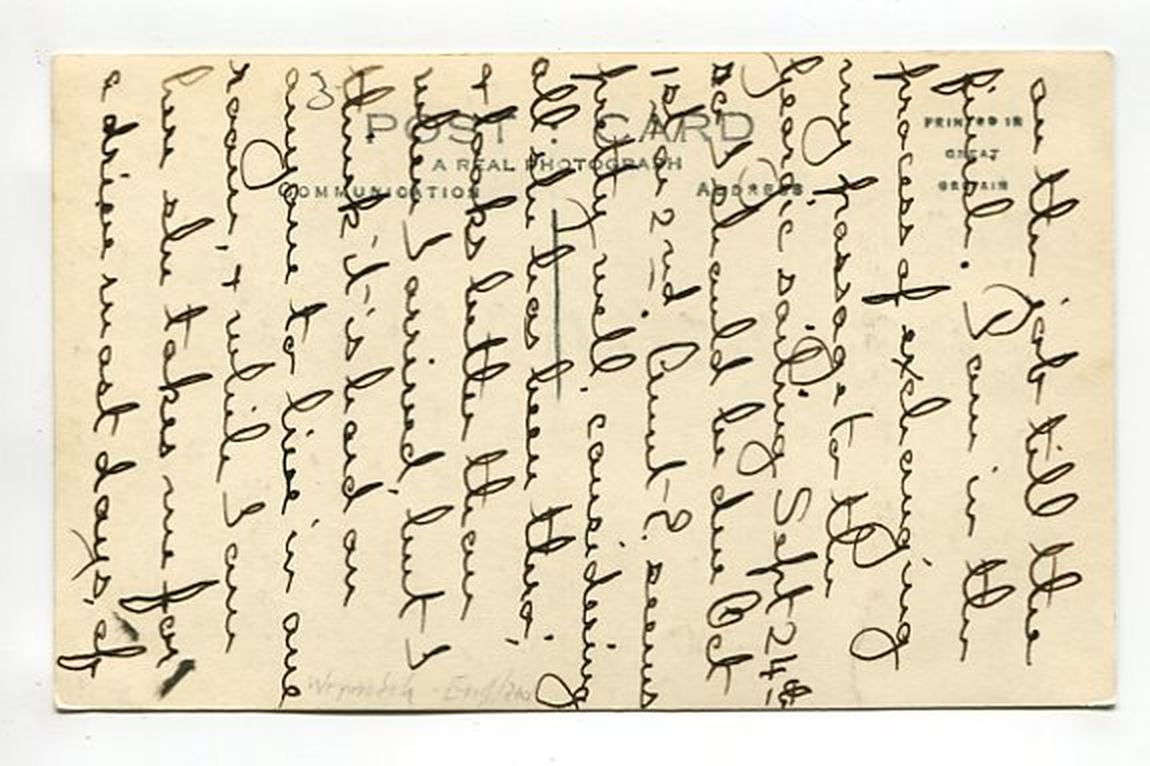 POST CARD
A REAL PHOTOGRAPH
COMMUNICATION
ADDRESS
PRINTED IN
GREAT
BRITAIN
3
on the job till the
finish. I am in the
process of exchanging
my passage to the
Georgic sailing Sept 24th
so I should be due Oct
1st or 2nd. Aunt seems
pretty well, considering
all she has been thro',
& looks better than
when I arrived, but I
think it is hard on
anyone to live in one
room, & while I am
here she takes me for
a drive most days, if